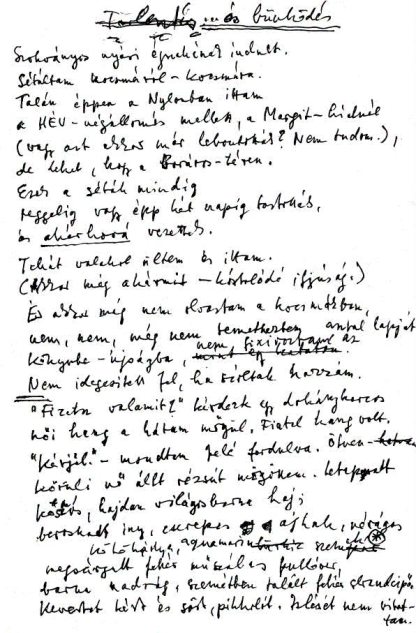 Jelentés más bűnhődés
Szokványos nyári éjnekének indult.
Sétáltam kocsmáról-kocsmára.
Talán éppen a Nylonban ittam
a HÉV-végállomás mellett, a Margit-hídnál
(vagy azt akkor már lebontották? Nem tudom.),
de lehet, hogy a Boráros-téren.
Ezek a séták mindig
reggelig vagy épp hét napig tartottak,
és akárhová vezettek.
Tehát valahol ültem és ittam.
(Akkor még akármit – kóstolódó ifjúság.)
És akkor még nem olvastam a kocsmákban,
nem, nem, még nem temetkeztem
könyvbe-újságba, nem fixíroztam az asztal lapját
Nem idegesített fel, ha szóltak hozzám.
"Fizetsz valamit?" kérdezte egy dohánykarcos
női hang a hátam mögül. Fiatal hang volt.
"Kérjél." – mondtam felé fordulva. Ötven-
körüli nő állt rézsút mögöttem. Letapadt
hajdan világosbarna haj;
beroskadt íny, cserepes ajkak, vérágas
kötőhártya, aquamarin
megsárgult fehér műszálas pullóver,
barna nadrág, szemétben talált fehér strandcipő
Kevertet kért és sört, pikkolót. Ízlését nem vitat-
tam.